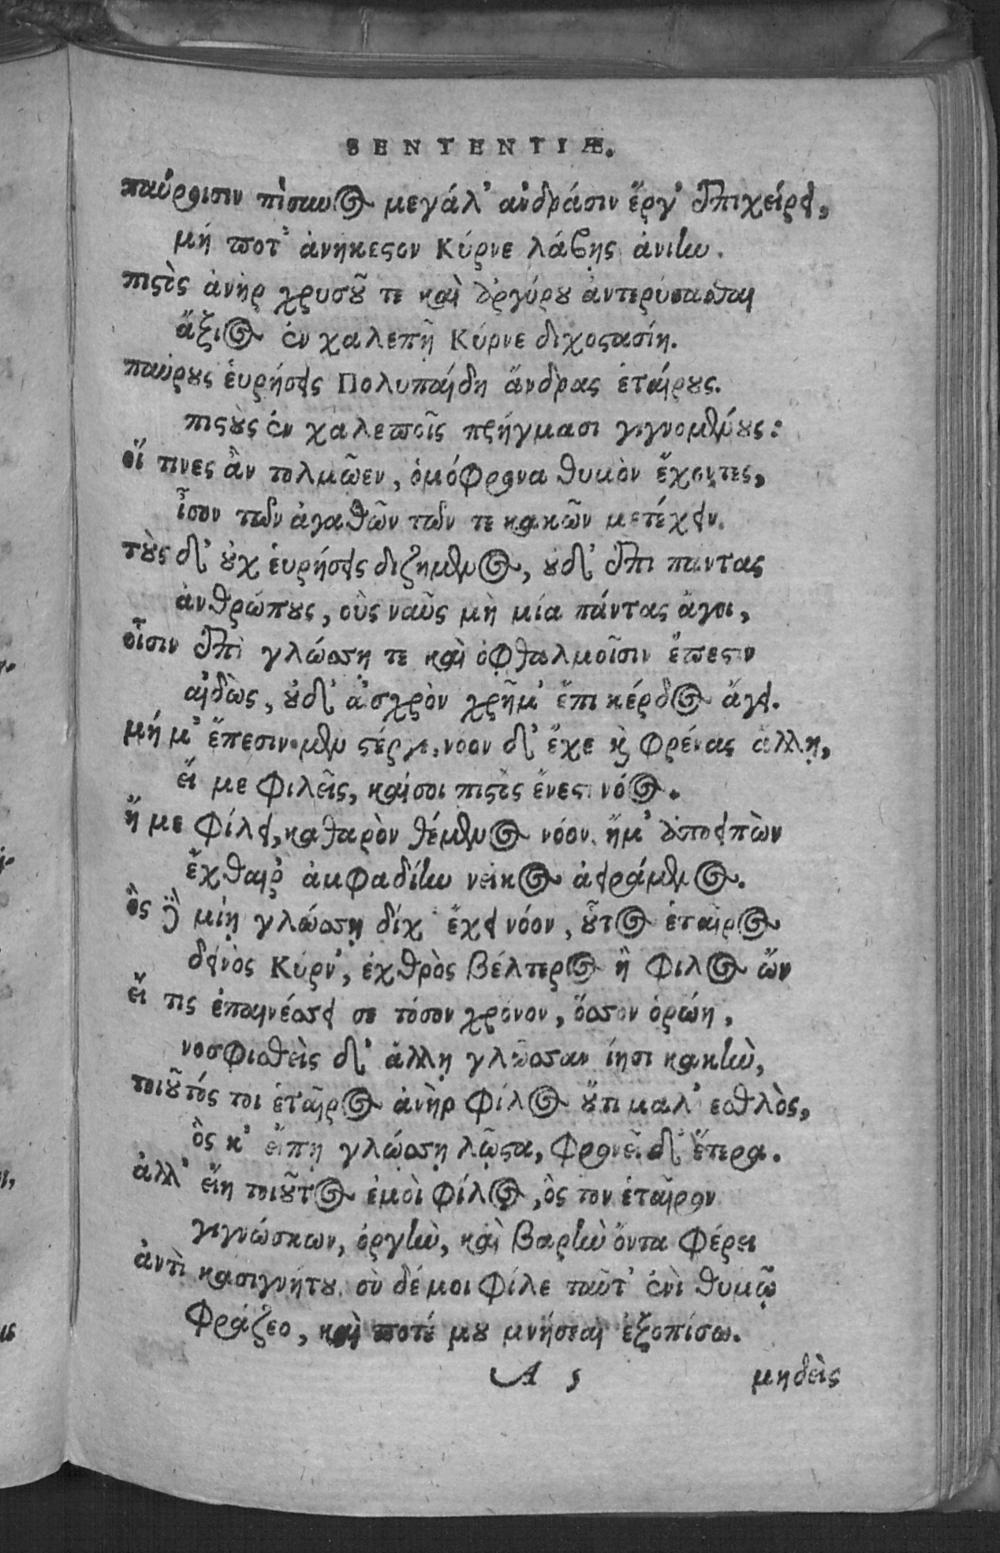 SENTENTIÆ.
παύροισιν πίσυνος μεγάλ' ἀνδράσιν ἔργ' ἐπιχείρει,
μή ποτ' ἀνήκεστον Κύρνε λάβῃς ἀνίην.
πιστὸς ἀνὴρ χρυσοῦ τε καὶ ἀργύρου ἀντερύσασθαι
ἄξιος ἐν χαλεπῇ Κύρνε διχοστασίῃ.
παύρους εὑρήσεις Πολυπαίδη ἄνδρας ἑταίρους.
πιστοὺς ἐν χαλεποῖς πρήγμασι γιγνομένους:
οἵ τινες ἂν τολμῷεν, ὁμόφρονα θυμὸν ἔχοντες,
ἶσον τῶν ἀγαθῶν τῶν τε κακῶν μετέχειν.
τοὺς δ' οὐχ εὑρήσεις διζήμενος, οὐδ' ἐπὶ πάντας
ἀνθρώπους, οὓς ναῦς μὴ μία πάντας ἄγοι,
οἷσιν ἐπὶ γλώσσῃ τε καὶ ὀφθαλμοῖσιν ἔπεστιν
αἰδὼς, οὐδ' αἰσχρὸν χρῆμ' ἔπι κέρδος ἄγει.
μή μ' ἔπεσιν μὲν στέργε, νόον δ' ἔχε καὶ φρένας ἄλλῃ,
εἴ με φιλεῖς, καί σοι πιστὸς ἔνεστι νόος.
ἤ με φίλει, καθαρὸν θέμενος νόον, ἤ μ' ἀποειπὼν
ἔχθαιρ' ἀμφαδίην νεῖκος ἀειράμενος.
ὃς δὲ μίῃ γλώσσῃ δίχ' ἔχει νόον, οὗτος ἑταῖρος
δεινὸς Κύρν', ἐχθρὸς βέλτερος ἢ φίλος ὤν
εἴ τις ἐπαινέσσει σε τόσον χρόνον, ὅσσον ὁρώῃ,
νοσφισθεὶς δ' ἄλλῃ γλῶσσαν ἵησι κακὴν,
τοιοῦτός τοι ἑταῖρος ἀνὴρ φίλος οὔτι μάλ' ἐσθλὸς,
ὃς κ' εἴπῃ γλώσσῃ λῷστα, φρονεῖ δ' ἕτερα.
ἀλλ' εἴη τοιοῦτος ἐμοὶ φίλος, ὃς τὸν ἑταῖρον
γιγνώσκων, ὀργὴν, καὶ βαρὺν ὄντα φέρει
ἀντὶ κασιγνήτου. σὺ δέ μοι φίλε ταῦτ' ἐνὶ θυμῷ
φράζεο, καὶ ποτέ μου μνήσεαι ἐξοπίσω.
A 5 μηδεὶς